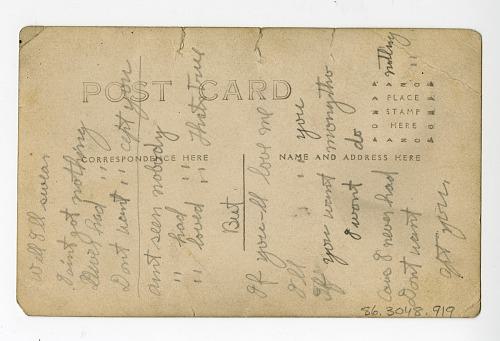 POST CARD
CORRESPONDENCE HERE
NAME AND ADDRESS HERE
AZO
PLACE
STAMP
HERE
AZO
Well I'll swear
I aint got nothing
Never had "
Dont want " cept you
aint seen nobody
" had "
" loved " That's true
But
If you-ll love me
I'll " you
If you want monytho
I wont do
Caus I never had nothing
Dont want "
Cept you.
86.3048.919